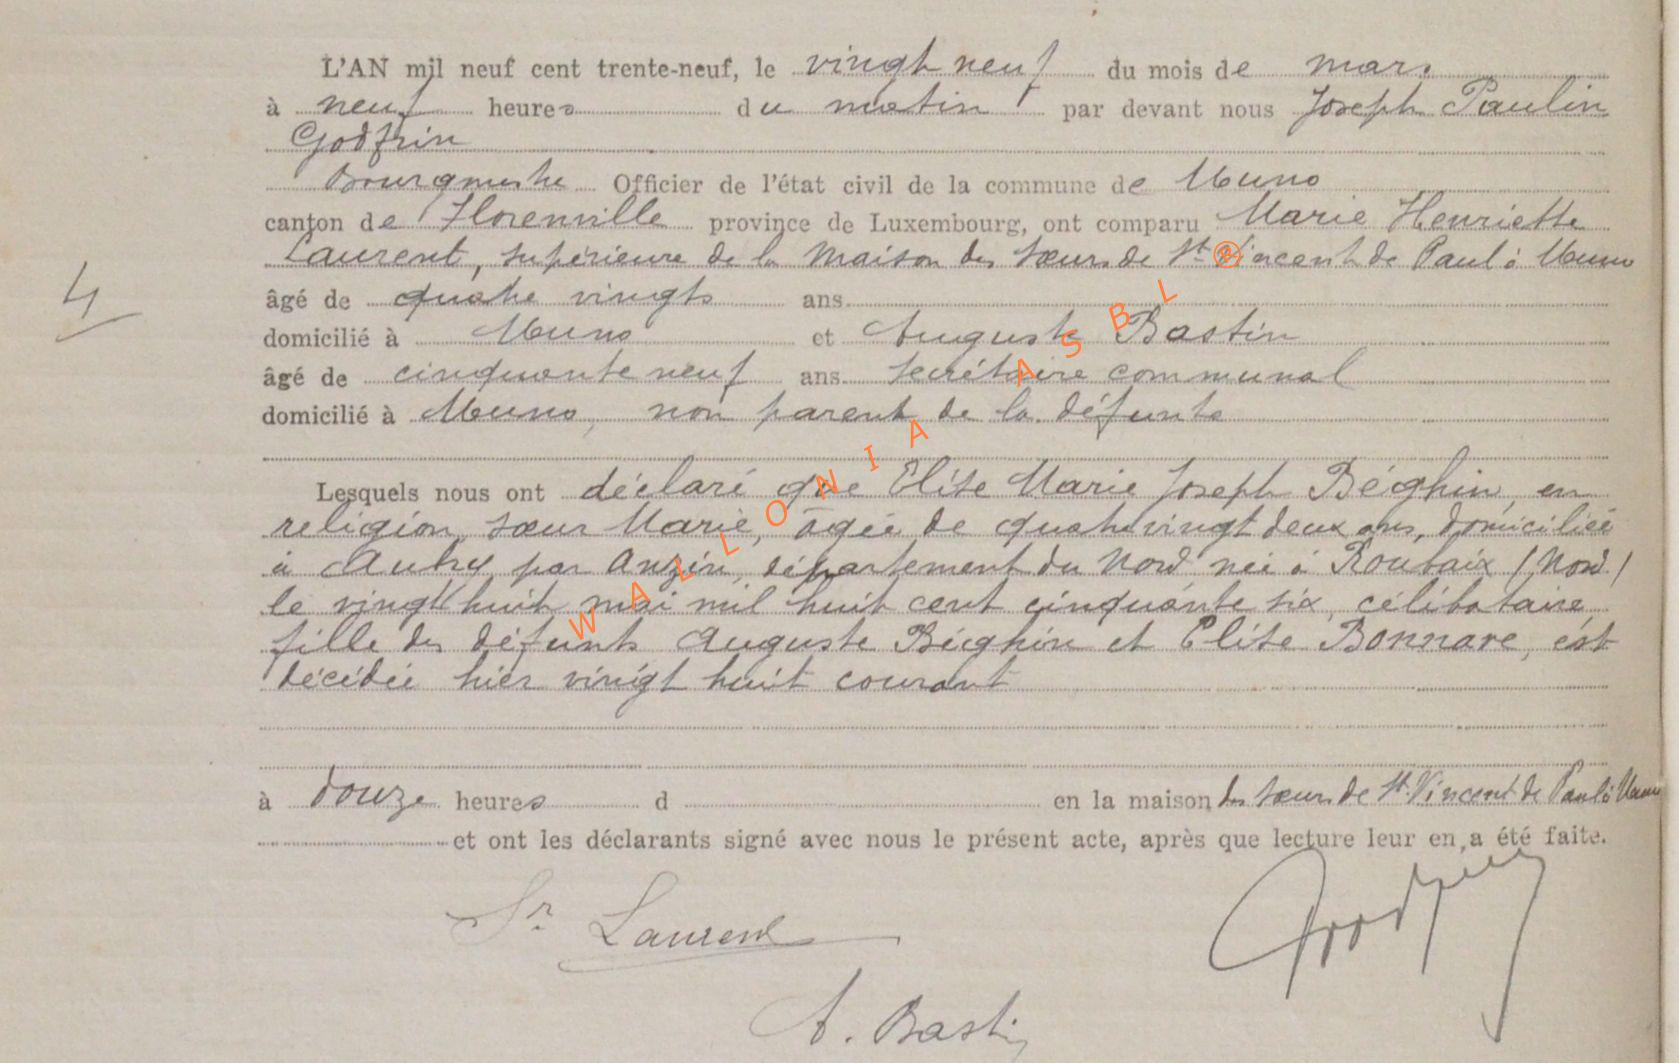 L'AN mil neuf cent trente-neuf, le vingt neuf du mois de mars
à neuf heures du matin par devant nous Joseph Paulin
Godfrin
Bourgmestre Officier de l'état civil de la commune de Muno
canton de Florenville province de Luxembourg, ont comparu Marie Henriette
Laurent, supérieure de la Maison des sœurs de St Vincent de Paul à Muno
4
âgé de quatre vingts ans
domicilié à Muno et Auguste Bastin
âgé de cinquante neuf ans secrétaire communal
domicilié à Muno, non parent de la défunte
Lesquels nous ont déclaré que Elise Marie Joseph Béghin, en
religion, sœur Marie, âgée de quatre vingt deux ans, domiciliée
à Aubry par Anzin, département du Nord née à Roubaix (Nord)
le vingt huit mai mil huit cent cinquante six, célibataire
fille des défunts Auguste Béghin et Elise Bonnave, est
décédée hier vingt huit courant
à douze heures d en la maison des sœurs de St. Vincent de Paul à Muno
et ont les déclarants signé avec nous le présent acte, après que lecture leur en a été faite.
Sr Laurent
Godfrin
A. Bastin
WALLONIA ASBL ®